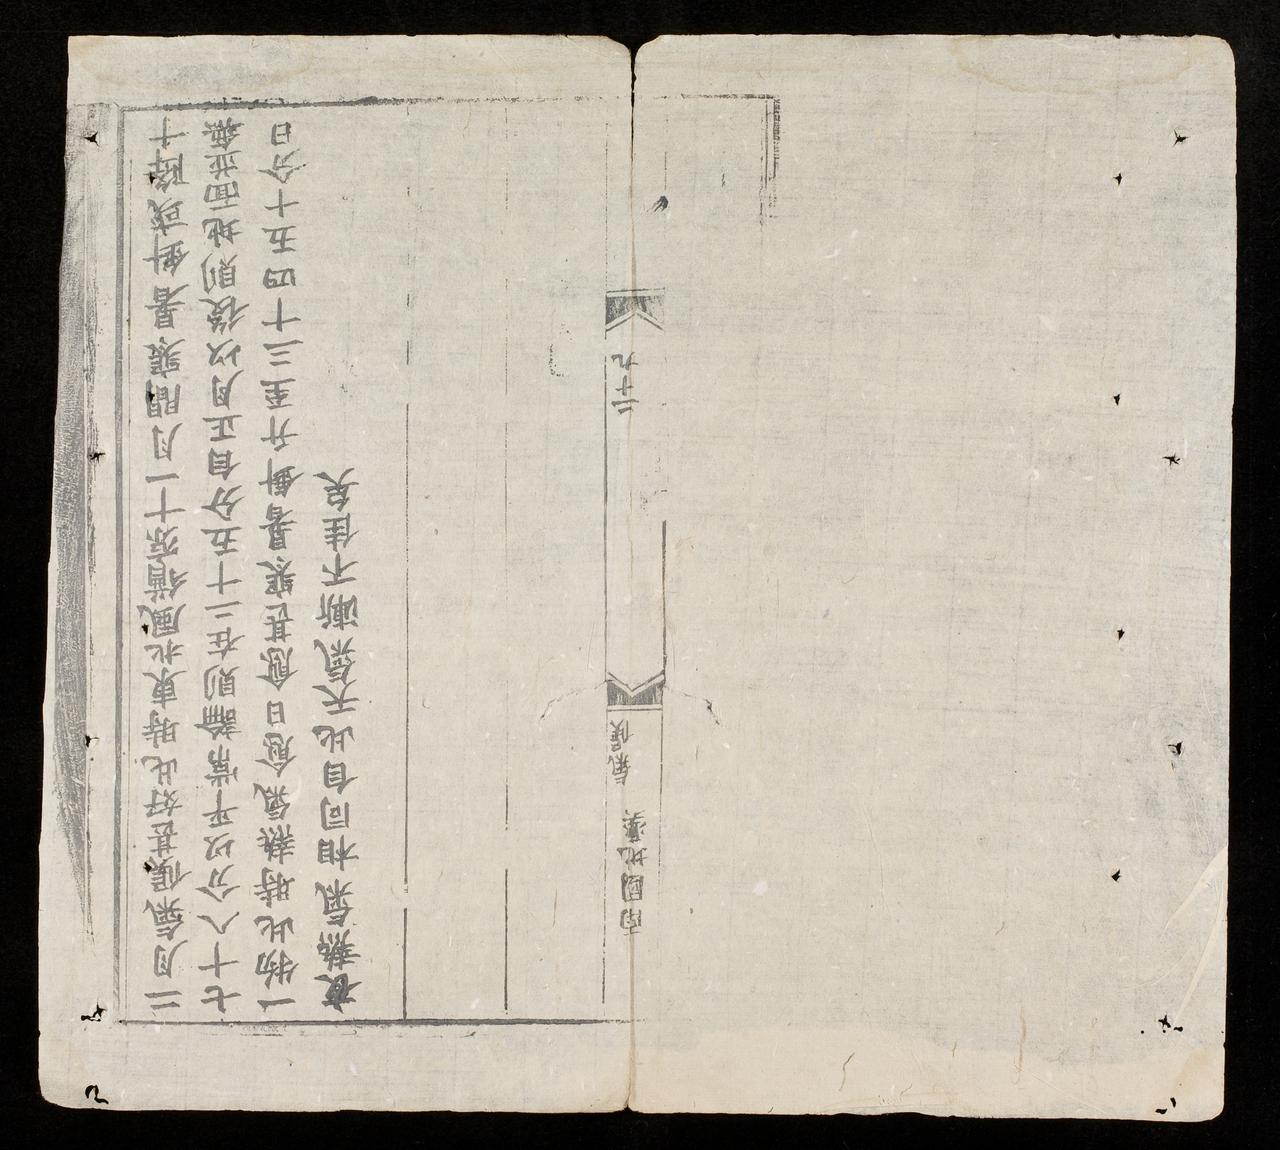 二月氣候甚好此時東北風稍涼十一月間寒暑針或降十
七十八分以平常論則在二十五分自正月以後則地面並無
一物此時熱氣愈日愈甚寒暑針升至三十四五十分日
夜熱氣相同自此天氣漸不佳矣
南國地輿
氣候
二十九